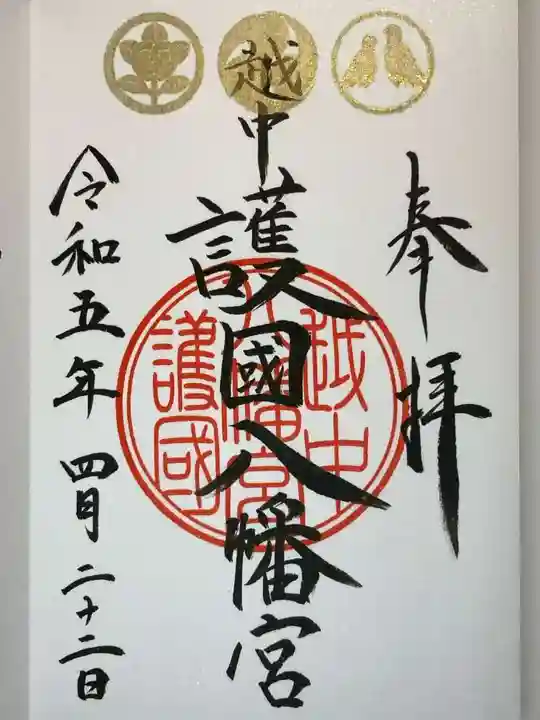 奉拝
越中
護國八幡宮
令和五年 四月 二十二日
越中
八幡宮
護國